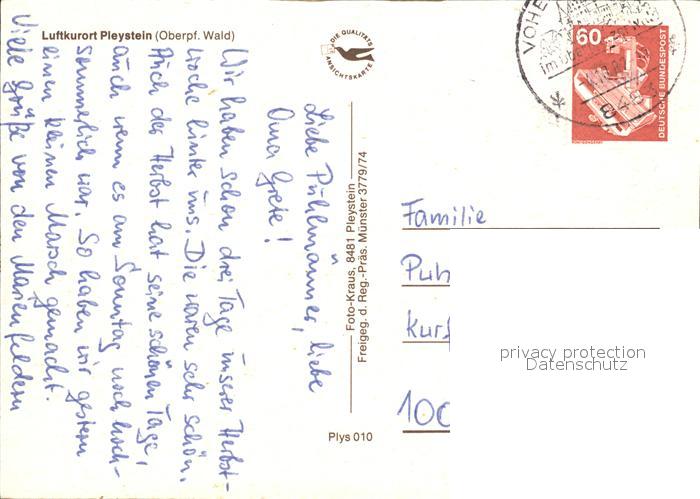 Luftkurort Pleystein (Oberpf. Wald)
DIE QUALITÄTS
ANSICHTSKARTE
Liebe Pühlmänner, liebe
Oma Grete!
Wir haben schon drei Tage unserer Herbst-
woche hinter uns. Die waren sehr schön.
Auch der Herbst hat seine schönen Tage,
auch wenn es am Sonntag noch hoch-
sommerlich war. So haben wir gestern
einen kleinen Marsch gemacht.
Viele Grüße von den Marienfeldern
Foto-Kraus, 8481 Pleystein
Freigeg. d. Reg.-Präs. Münster 3779/74
Plys 010
VOHE
60
DEUTSCHE BUNDESPOST
Familie
Püh
Kurf
100
privacy protection
Datenschutz